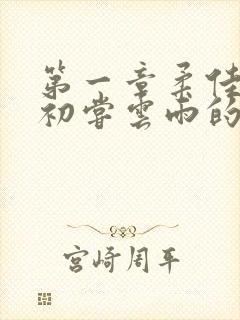 第一章柔佳
初尝云雨的
宫崎周平